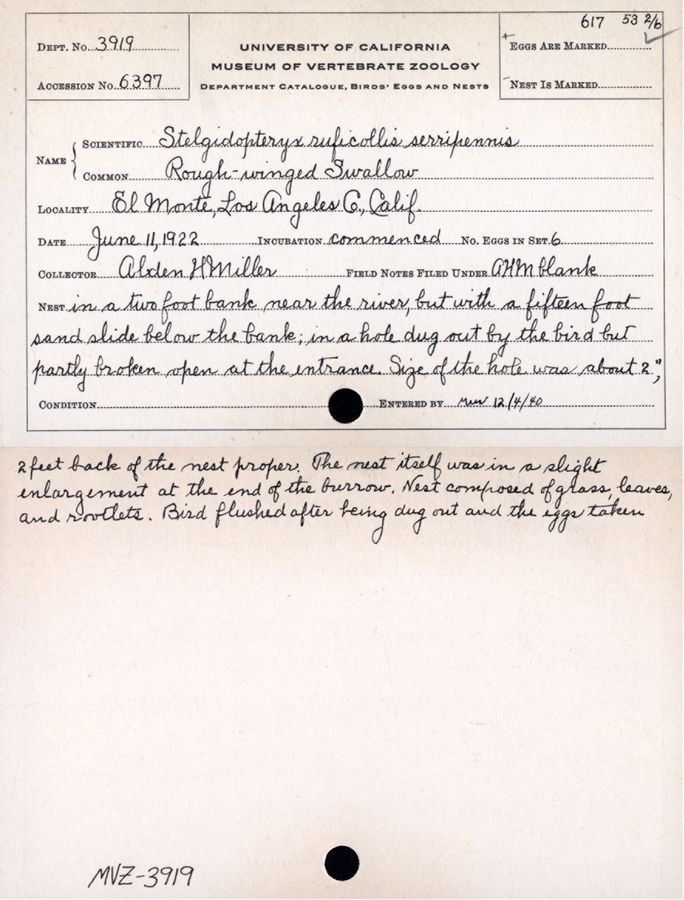 617 53 2/6
Dept. No. 3919
Accession No. 6397
UNIVERSITY OF CALIFORNIA
MUSEUM OF VERTEBRATE ZOOLOGY
Department Catalogue, Birds' Eggs and Nests
+ Eggs Are Marked
- Nest Is Marked
Name { Scientific Stelgidopteryx ruficollis serripennis
Common Rough-winged Swallow
Locality El Monte, Los Angeles C., Calif.
Date June 11, 1922 Incubation commenced No. Eggs in Set 6
Collector Alden H Miller Field Notes Filed Under AHM blank
Nest in a two foot bank near the river, but with a fifteen foot
sand slide below the bank; in a hole dug out by the bird but
partly broken open at the entrance. Size of the hole was about 2";
Condition Entered by 12/4/40
2 feet back of the nest proper. The nest itself was in a slight
enlargement at the end of the burrow. Nest composed of grass, leaves,
and rootlets. Bird flushed after being dug out and the eggs taken
MVZ-3919